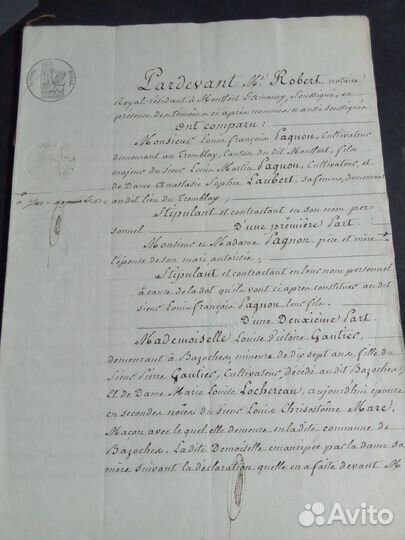 Pardevant Me. Robert, notaire
Royal résidant à Montfort Lamaury, Soussigné, en
présence des témoins ci après nommés et aussi soussignés
Ont comparu :
Monsieur Louis François Pagnon, Cultivateur
demeurant au Tremblay, Canton du dit Montfort, fils
majeur du sieur Louis Martin Pagnon, Cultivateur, et
de Dame Anastasie Sophie Laubert, sa femme, demeurant
audit lieu du Tremblay ;
Stipulant et contractant en son nom per-
sonnel D'une première Part.
Monsieur et Madame Pagnon, père et mère
l'épouse de son mari autorisée ;
Stipulant et contractant en leur nom personnel
à cause de la dot qu'ils vont ci après constituer au dit
sieur Louis François Pagnon, leur fils.
D'une Deuxième Part.
Mademoiselle Louise Victoire Gautier,
demeurant à Bazoches, mineure de dix sept ans, fille du
Sieur Pierre Gautier, Cultivateur, décédé audit Bazoches,
Et de Dame Marie Louise Lochereau, aujourd'hui épouse
en secondes noces du sieur Louis Chrisostôme Marc,
Maçon avec lequel elle demeure en ladite commune de
Bazoches. Ladite Demoiselle émancipée par la dame sa
mère suivant la déclaration qu'elle en a faite devant M
Avito